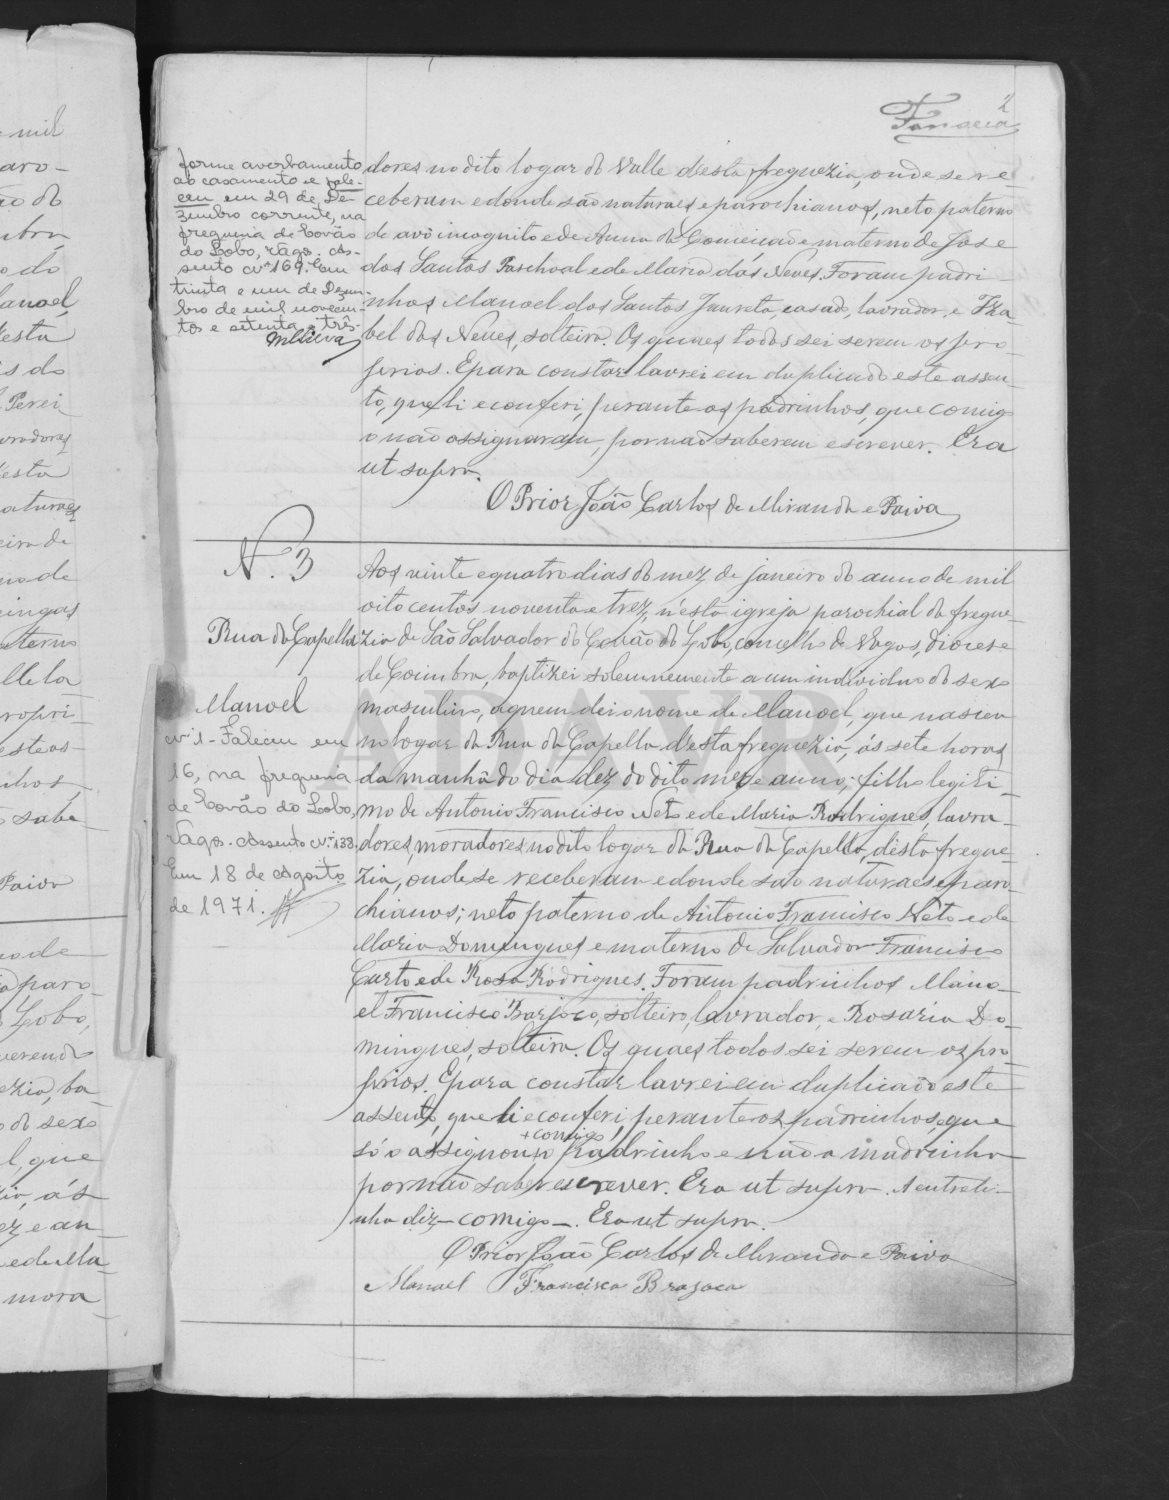 2
Fonseca
forme averbamento
ao casamento e fale-
ceu em 29 de De-
zembro corrente, na
freguesia de Covão
do Lobo, Vagos. As-
sento Nº 169. Em
trinta e um de Dezem-
bro de mil novecen-
tos e setenta e três.
MSilva
dores no dito logar do Valle d'esta freguezia, onde se re-
ceberam e donde são naturaes e parochianos, neto paterno
de avô incognito e de Anna da Conceição e materno de José
dos Santos Paschoal e de Maria das Neves. Foram padri-
nhos Manoel dos Santos Janreta, casado, lavrador, e Iza-
bel das Neves, solteira. Os quaes todos sei serem os pro-
prios. E para constar lavrei em duplicado este assen-
to, que li e conferi, perante os padrinhos, que comig-
o não assignaram, por não saberem escrever. Era
ut supra.
O Prior João Carlos de Miranda e Paiva
N. 3
Rua da Capella
Manoel
Nº 1 - Faleceu em
16, na freguesia
de Covão do Lobo,
Vagos. Assento Nº 138.
Em 18 de Agosto
de 1971.
Aos vinte e quatro dias do mez de janeiro do anno de mil
oito centos noventa e trez, n'esta igreja parochial da fregue-
zia de São Salvador do Covão do Lobo, concelho de Vagos, diocese
de Coimbra, baptizei solemnemente a um individuo do sexo
masculino, a quem dei o nome de Manoel, que nasceu
no logar da Rua da Capella d'esta freguezia, ás sete horas
da manhã do dia dez do dito mez e anno; filho legiti-
mo de Antonio Francisco Neto e de Maria Rodrigues, lavra-
dores, moradores no dito logar da Rua da Capella, d'esta fregue-
zia, onde se receberam e donde são naturaes e paro-
chianos; neto paterno de Antonio Francisco Neto e de
Maria Domingues e materno de Salvador Francisco
Curto e de Rosa Rodrigues. Foram padrinhos Mano-
el Francisco Barjoco, solteiro, lavrador, e Rosaria Do-
mingues, solteira. Os quaes todos sei serem os pro-
prios. E para constar lavrei em duplicado este
assento, que li e conferi, perante os padrinhos, que
+ comigo
só o assignou + o padrinho e não a madrinha
por não saber escrever. Era ut supra. A entreli-
nha diz - comigo -. Era ut supra.
O Prior João Carlos de Miranda e Paiva
Manoel Francisco Brajaca
ADAVR